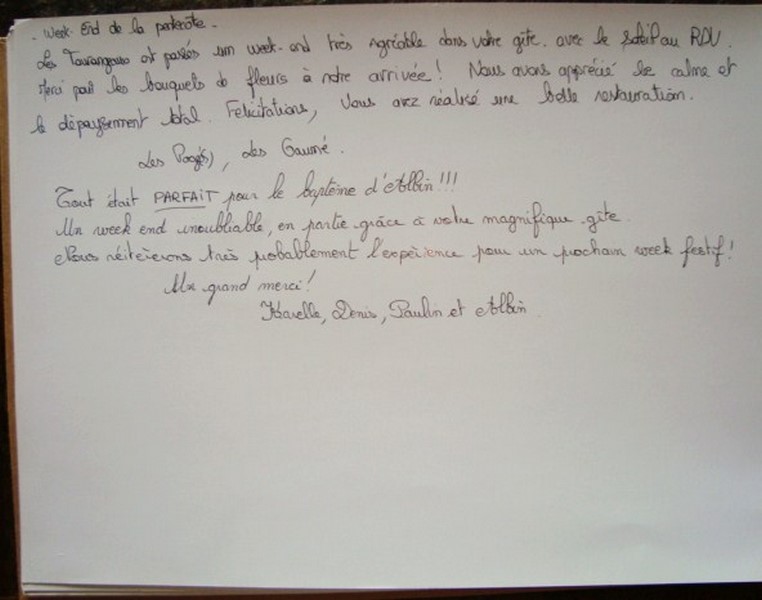 - Week-End de la pentecôte -
Les Tourangeaux ont passés um week-end très agréable dans votre gîte. avec le soleil au RDV.
Merci pour les bouquets de fleurs à notre arrivée! Nous avons apprécié le calme et
le dépaysement total. Felicitations, Vous avez réalisé une belle restauration.
Les Pagès, Les Gaumé.
Tout était PARFAIT pour le baptême d'Albin!!!
Un week end inoubliable, en partie grâce à votre magnifique gîte.
Nous réitèrerons très probablement l'expèrience pour un prochain week festif!
Un grand merci!
Denis, Paulin et Albin